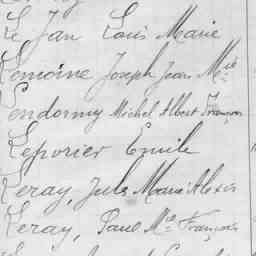 Le Jan Louis Marie
Lemoine Joseph Jean Mie
Lendormy Michel Albert François
Leporier Emile
Leray, Jules Marie Alexis
Leray, Paul Mie François